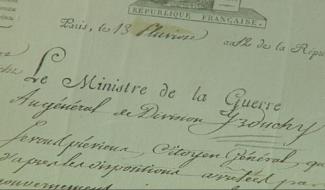 RÉPUBLIQUE FRANÇAISE.
Paris, le 13 Pluviose an 12 de la Répu
Le Ministre de la Guerre
Au général de Division Grouchy
Je vous préviens, Citoyen Général, que
d'après les dispositions arrêtées pa
gouvernement